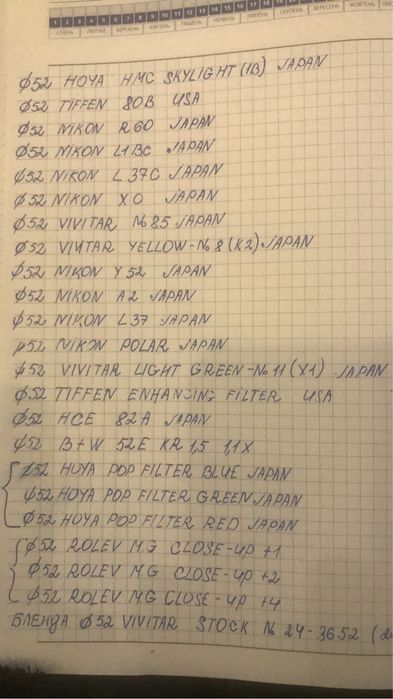 1 2 3 4 5 6 7 8 9 10 11 12 13 14 15 16 17 18
СІЧЕНЬ ЛЮТИЙ БЕРЕЗЕНЬ КВІТЕНЬ ТРАВЕНЬ ЧЕРВЕНЬ ЛИПЕНЬ СЕРПЕНЬ ВЕРЕСЕНЬ ЖОВТЕНЬ
φ52 HOYA HMC SKYLIGHT (1B) JAPAN
φ52 TIFFEN 80B USA
φ52 NIKON R60 JAPAN
φ52 NIKON L1BC JAPAN
φ52 NIKON L 37C JAPAN
φ52 NIKON X0 JAPAN
φ52 VIVITAR №85 JAPAN
φ52 VIVITAR YELLOW-№8 (X2) JAPAN
φ52 NIKON Y52 JAPAN
φ52 NIKON A2 JAPAN
φ52 NIKON L37 JAPAN
φ52 NIKON POLAR JAPAN
φ52 VIVITAR LIGHT GREEN-№11 (X1) JAPAN
φ52 TIFFEN ENHANCING FILTER USA
φ52 HCE 82A JAPAN
φ52 B+W 52E KR 1,5 1,1X
φ52 HOYA POP FILTER BLUE JAPAN
φ52 HOYA POP FILTER GREEN JAPAN
φ52 HOYA POP FILTER RED JAPAN
φ52 ROLEV M.G CLOSE-UP +1
φ52 ROLEV M.G CLOSE-UP +2
φ52 ROLEV M.G CLOSE-UP +4
БЛЕНДА φ52 VIVITAR STOCK № 24-3652